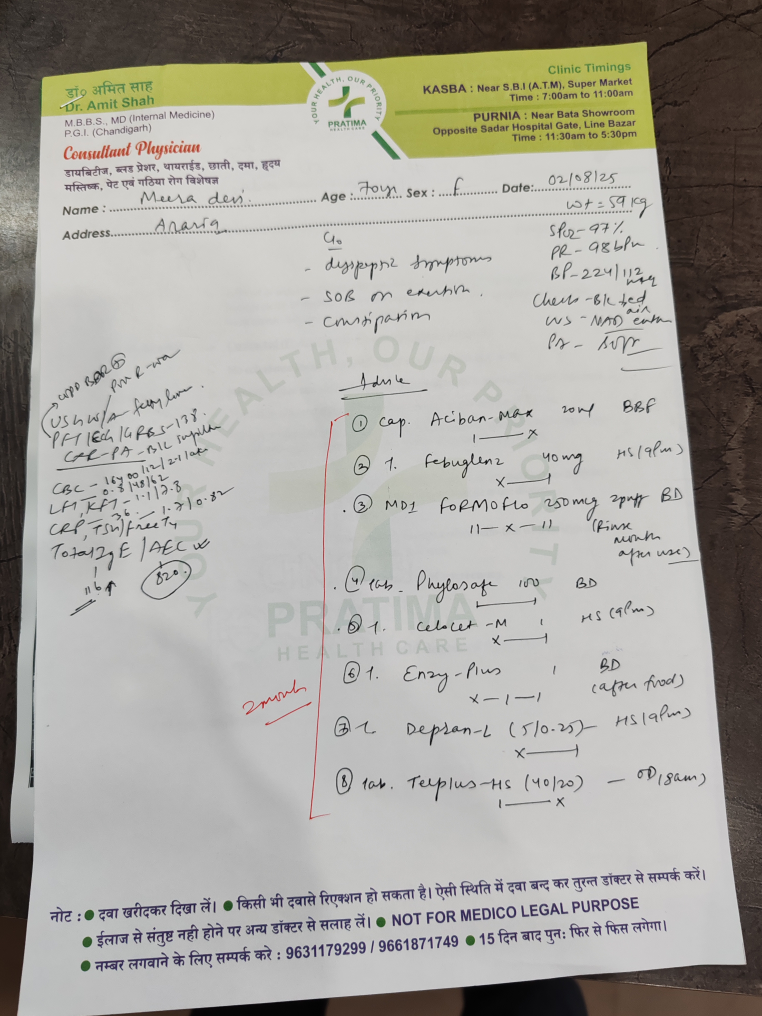 डॉ० अमित साह
Dr. Amit Shah
M.B.B.S., MD (Internal Medicine)
P.G.I. (Chandigarh)
Consultant Physician
डायबिटीज, ब्लड प्रेशर, थायराईड, छाती, दमा, हृदय
मस्तिष्क, पेट एवं गठिया रोग विशेषज्ञ
YOUR HEALTH, OUR PRIORITY
PRATIMA
HEALTH CARE
Clinic Timings
KASBA : Near S.B.I (A.T.M), Super Market
Time : 7:00am to 11:00am
PURNIA : Near Bata Showroom
Opposite Sadar Hospital Gate, Line Bazar
Time : 11:30am to 5:30pm
Name : Meera devi Age : 70yr Sex : F Date: 02/08/25
Address Araria
Wt = 59 kg
SPO2 - 97%
PR - 98 bpm
BP - 224/112
Chest - B/L
PA - Soft
C/o
- dyspeptic symptoms
- SOB on exertion.
- Constipation
USG W/A - fatty liver.
PFT/ECG/GRBS - 138.
CBC -
LFT, KFT - 1.1/7.8
CRP, TSH/Free T4
Total IgE / AEC
116 ↑
820
YOUR HEALTH, OUR PRIORITY
PRATIMA
HEALTH CARE
Advice
① Cap. Aciban-Max 20mg BBF
1 — x
② T. Febuglenz 40mg HS (9pm)
x — 1
③ MDI FORMOFLO 250mcg 2puff BD
11 — x — 11 (Rinse
mouth
after use)
④ Tab. Phylosafe 100 BD
⑤ T. Celocet-M 1 HS (9pm)
x — 1
⑥ T. Enzy-Plus 1 BD
x — 1 — 1 (after food)
⑦ T. Depran-L (5/0.25) - HS (9pm)
x — 1
⑧ Tab. Telplus-HS (40/20) — OD (8am)
1 — x
2 months
नोट : ● दवा खरीदकर दिखा लें। ● किसी भी दवासे रिएक्शन हो सकता है। ऐसी स्थिति में दवा बन्द कर तुरन्त डॉक्टर से सम्पर्क करें।
● ईलाज से संतुष्ट नही होने पर अन्य डॉक्टर से सलाह लें। ● NOT FOR MEDICO LEGAL PURPOSE
● नम्बर लगवाने के लिए सम्पर्क करे : 9631179299 / 9661871749 ● 15 दिन बाद पुनः फिर से फिस लगेगा।